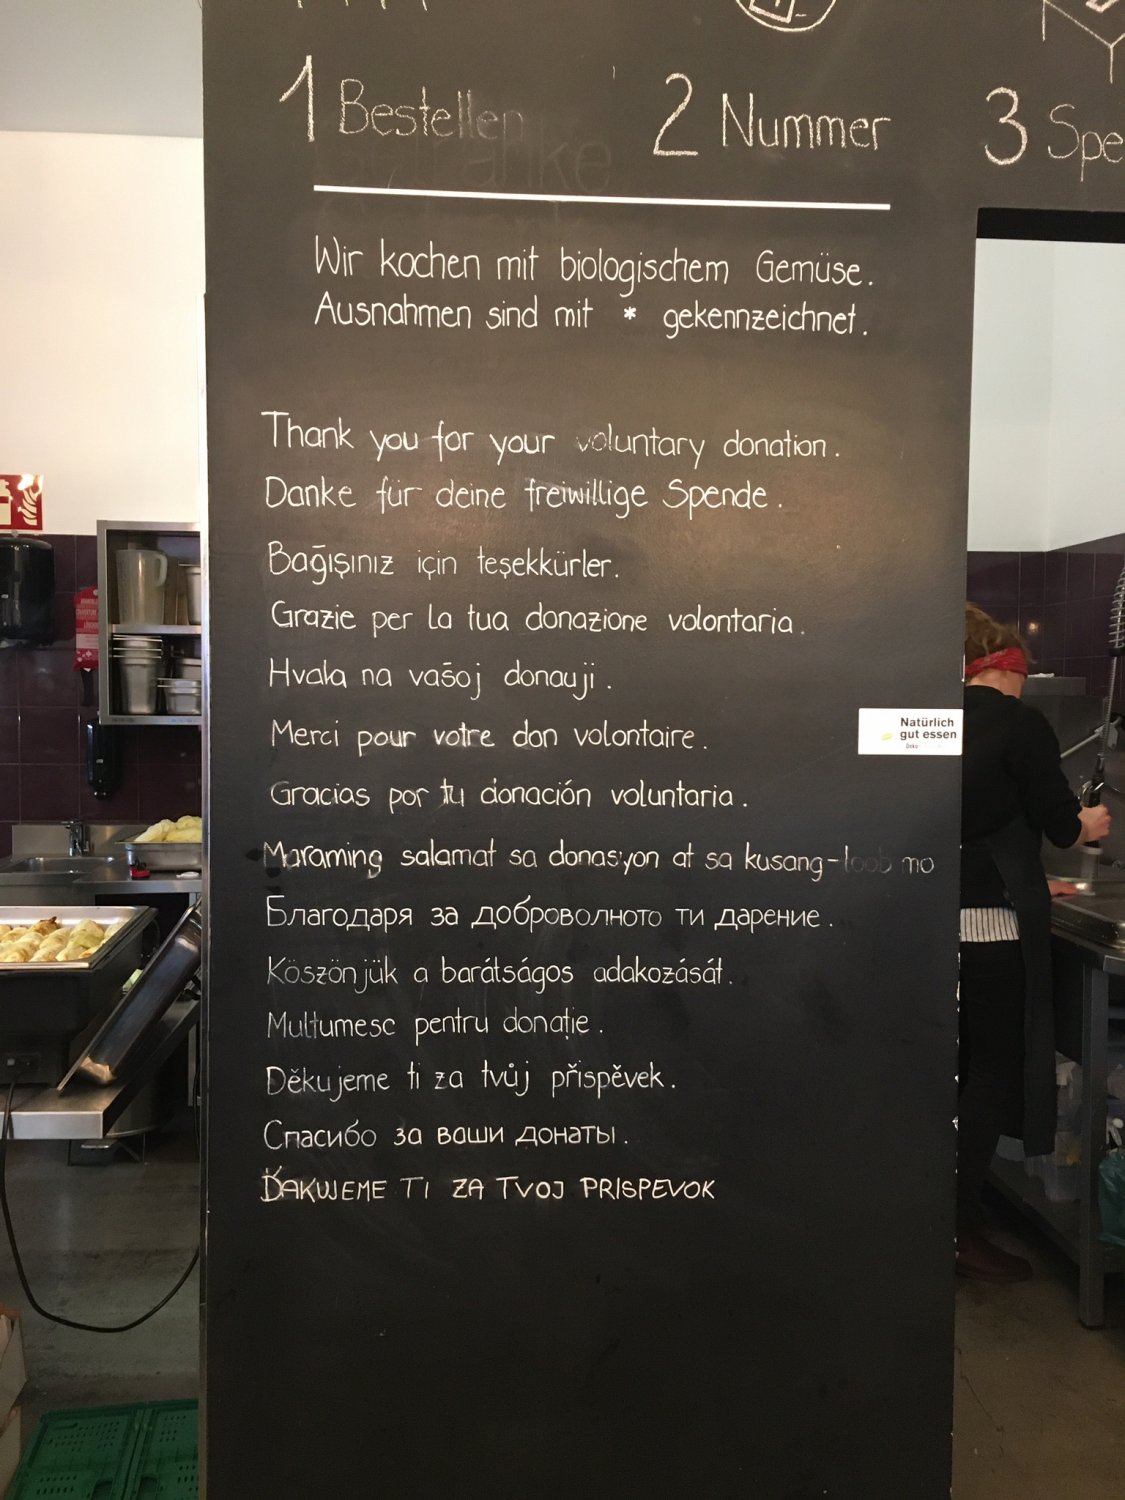 1 Bestellen 2 Nummer 3 Spe
Wir kochen mit biologischem Gemüse.
Ausnahmen sind mit * gekennzeichnet.
Thank you for your voluntary donation.
Danke für deine freiwillige Spende.
Bağışınız için teşekkürler.
Grazie per la tua donazione volontaria.
Hvala na vašoj donauji.
Merci pour votre don volontaire.
Natürlich
gut essen
Gracias por tu donación voluntaria.
Maraming salamat sa donasyon at sa kusang-loob mo
Благодаря за доброволното ти дарение.
Köszönjük a barátságos adakozását.
Multumesc pentru donație.
Děkujeme ti za tvůj přispěvek.
Спасибо за ваши донаты.
ĎAKUJEME TI ZA TVOJ PRISPEVOK